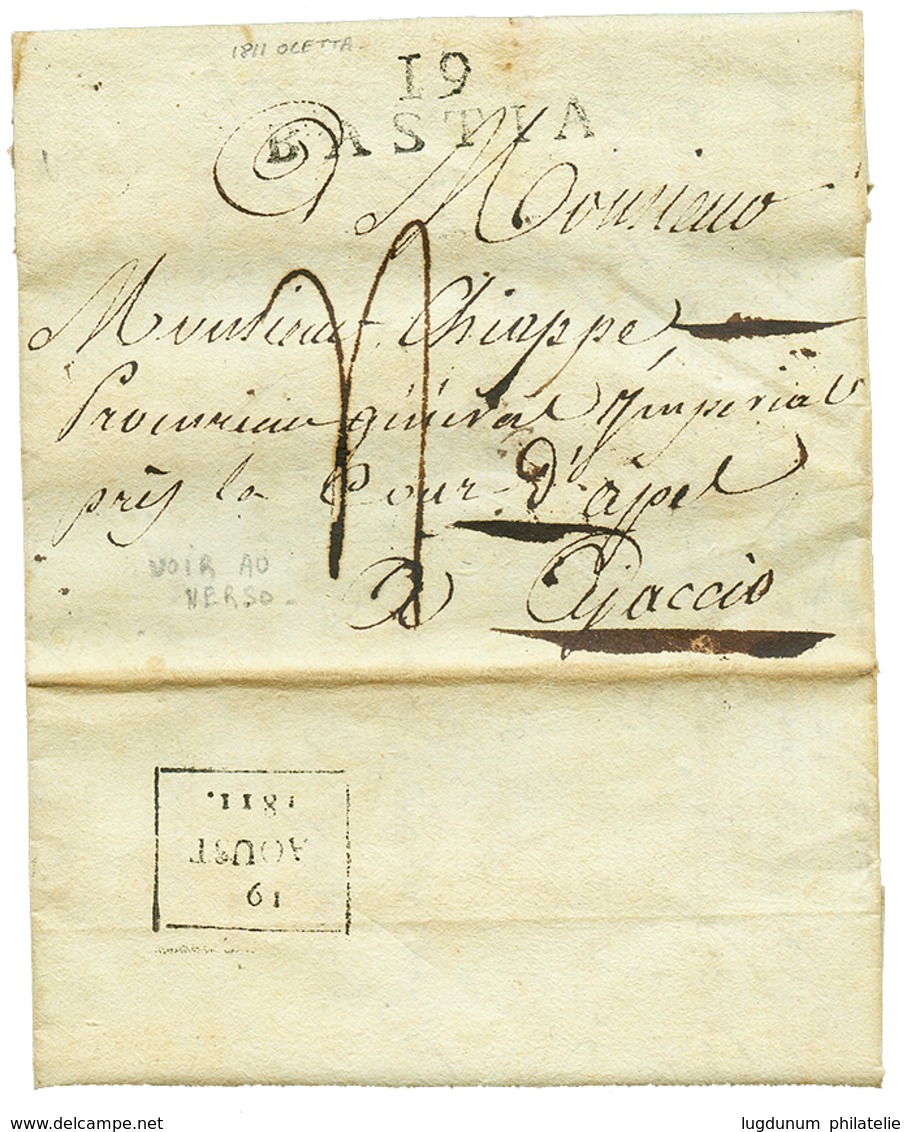 1811 OLETTA
19
BASTIA
Monsieur
Monsieur Chiappe,
Procureur général Imperial
près la Cour d'apel
A Ajaccio
VOIR AU
VERSO -
19
AOUST
1811.
lugdunum philatelie